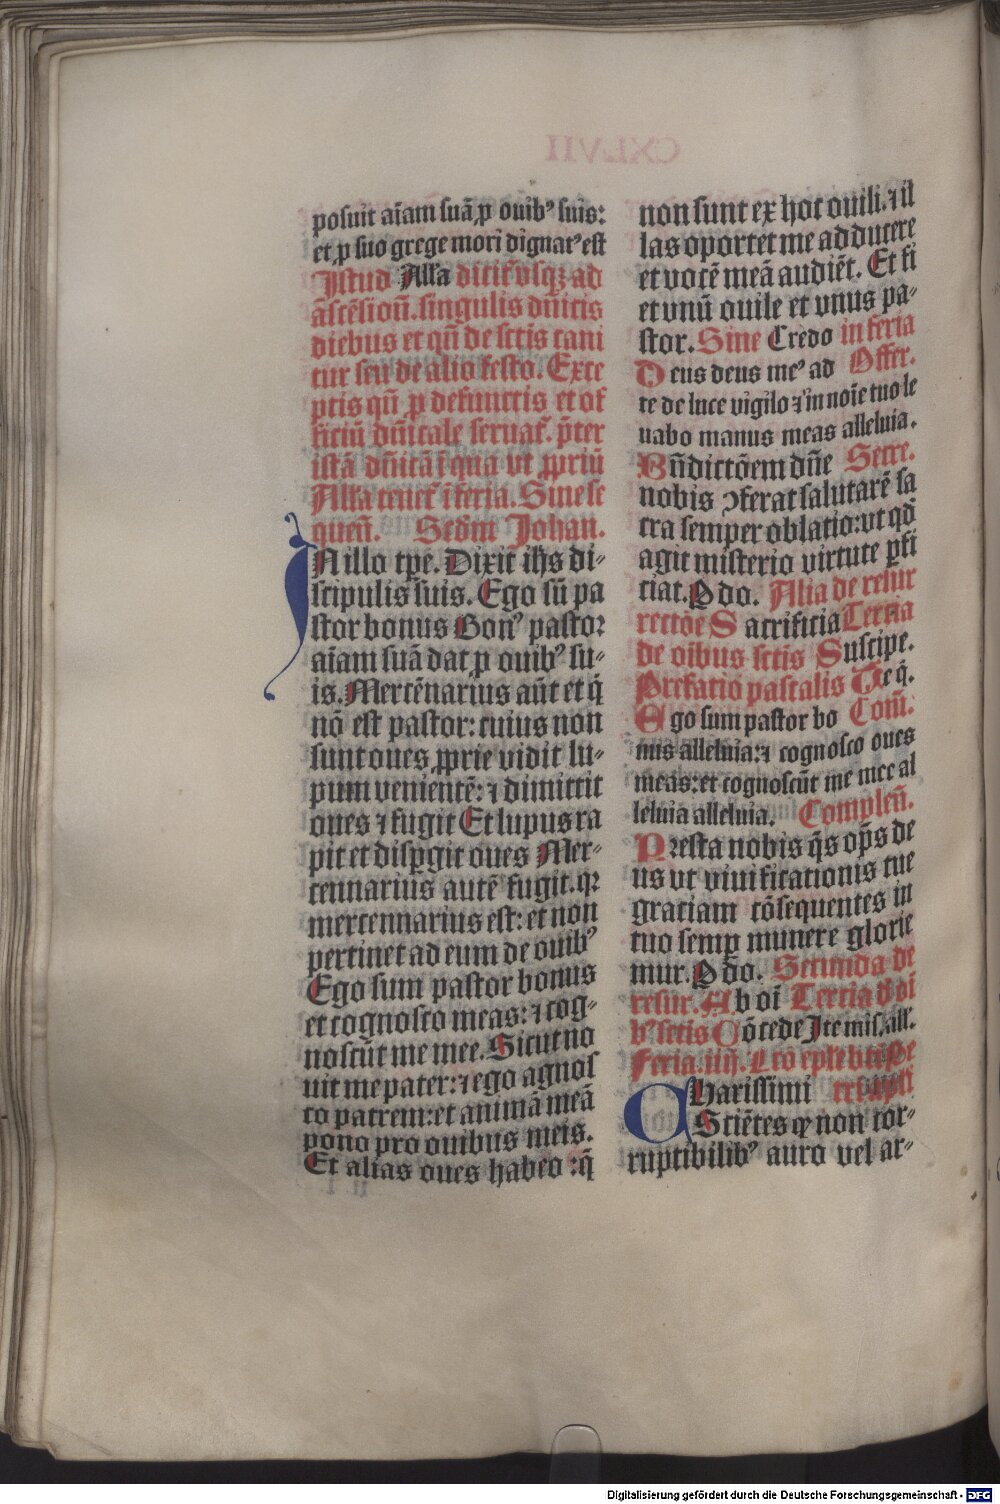 posuit aīam suā ꝓ ouibꝰ suis:
et ꝓ suo grege mori dignatꝰ est
Istud Alla dicit᷑ vsqꝫ ad
ascēsionē. singulis dn̄icis
diebus et qn̄ de sctis cani
tur seu de alio festo. Exce
ptis qn̄ ꝓ defunctis et of
ficiū dn̄icale seruat᷑. p̄ter
istā dn̄icā ī qua vt ꝓpriū
Alla tenet᷑ ī feria. Sine se
quen̄. Scdm Johan.
IN illo tꝑe. Dixit ihs di-
scipulis suis. Ego sū pa
stor bonus Bonꝰ pastor
aīam suā dat ꝓ ouibꝰ su-
is. Mercēnarius aūt et q̄
nō est pastor: cuius non
sunt oues ꝓprie vidit lu-
pum venientē: ⁊ dimittit
oues ⁊ fugit Et lupus ra
pit et dispgit oues Mer-
cennarius autē fugit. qꝛ
mercennarius est: et non
pertinet ad eum de ouibꝰ
Ego sum pastor bonus
et cognosco meas: ⁊ cog-
noscūt me mee. Sicut no
uit me pater: ⁊ ego agnos
co patrem: et animā meā
pono pro ouibus meis.
Et alias oues habeo: q̄
non sunt ex hoc ouili. ⁊ il
las oportet me adducere
et vocē meā audiēt. Et fi
et vnū ouile et vnus pa-
stor. Sine Credo in feria
Deus deus meꝰ ad Offer.
te de luce vigilo ⁊ in noīe tuo le
uabo manus meas alleluia.
Bn̄dictōem dn̄e Secre.
nobis ꝯferat salutarē sa
cra semper oblatio: vt qd̄
agit misterio virtute ꝑfi
ciat. P do. Alia de resur
rectōe Sacrificia Tercia
de oībus sctis Suscipe.
Prefatio pascalis Te q̄.
Ego sum pastor bo Com̄.
nus alleluia: ⁊ cognosco oues
meas: et cognoscūt me mee al
leluia alleluia. Complen̄.
Presta nobis q̄s op̄s de
us vt viuificationis tue
gratiam cōsequentes in
tuo semꝑ munere glorie
mur. P do. Secunda de
resur. Ab oī Tercia d oī
bꝰ sctis Cōcede Ite mis. all.
Feria .iiij. Lcō eple bti Pe
CHarissimi tri apli
Sciētes qꝫ non cor-
ruptibilibꝰ auro vel ar-
Digitalisierung gefördert durch die Deutsche Forschungsgemeinschaft - DFG